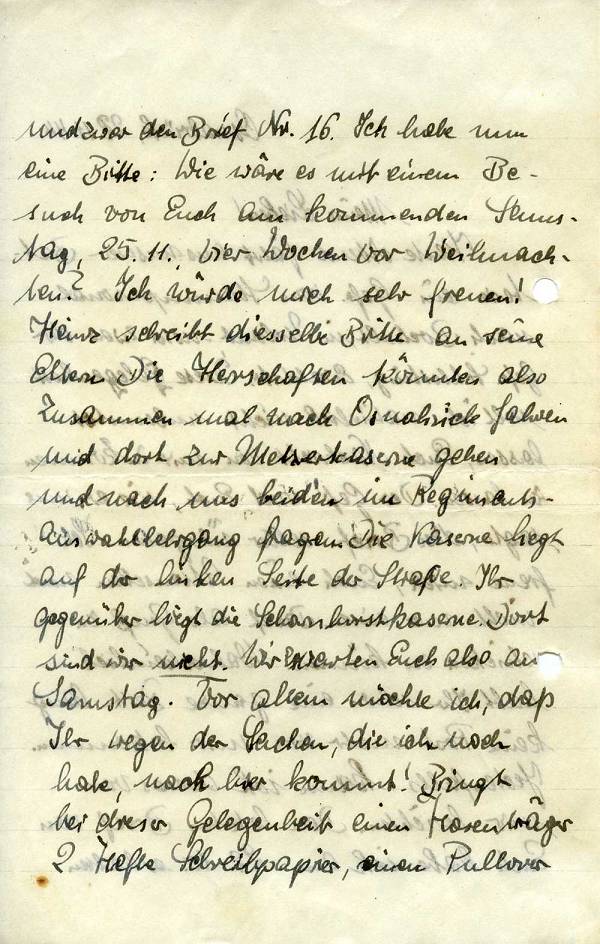 und zwar den Brief Nr. 16. Ich habe nun
eine Bitte: Wie wäre es mit einem Be-
such von Euch am kommenden Sams-
tag, 25. 11., vier Wochen vor Weihnach-
ten? Ich würde mich sehr freuen!
Heinz schreibt diesselbe Bitte an seine
Eltern. Die Herrschaften könnten also
zusammen mal nach Osnabrück fahren
und dort zur Metzerkaserne gehen
und nach uns beiden im Regiments-
auswahllehrgang fragen. Die Kaserne liegt
auf der linken Seite der Straße. Ihr
gegenüber liegt die Scharnhorstkaserne. Dort
sind wir nicht. Wir erwarten Euch also am
Samstag. Vor allem möchte ich, daß
Ihr wegen der Sachen, die ich noch
habe, nach hier kommt! Bringt
bei dieser Gelegenheit einen Hosenträger
2 Hefte Schreibpapier, einen Pullover